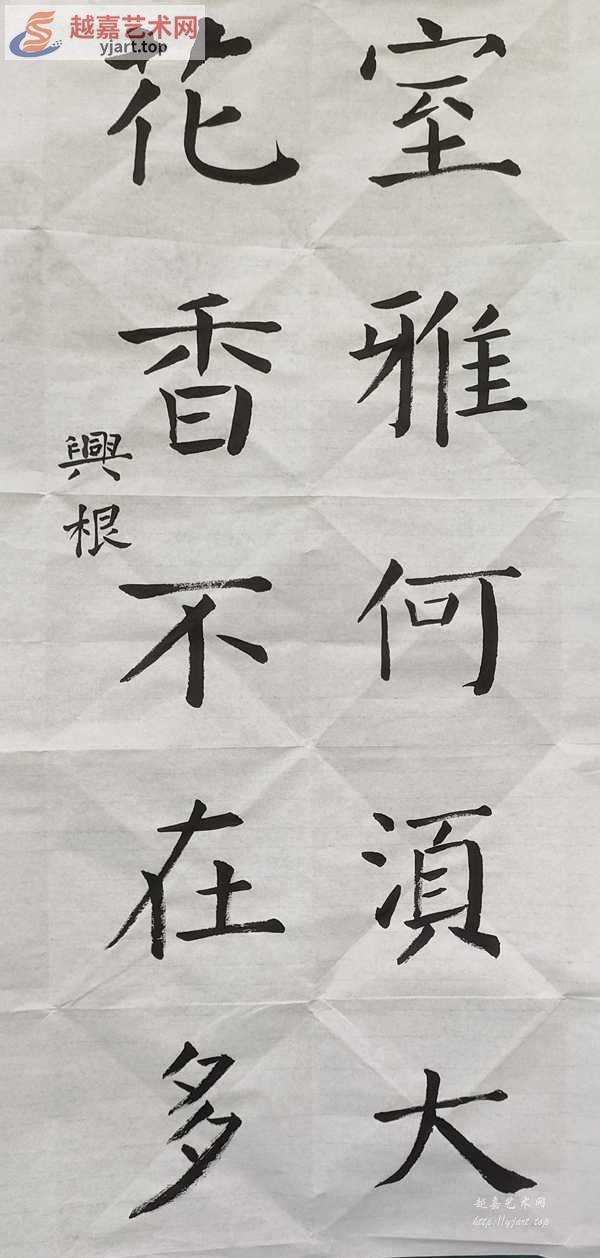 室雅何須大
花香不在多
興根
越嘉艺术网
yjart.top
越嘉艺术网
http://yjart.top